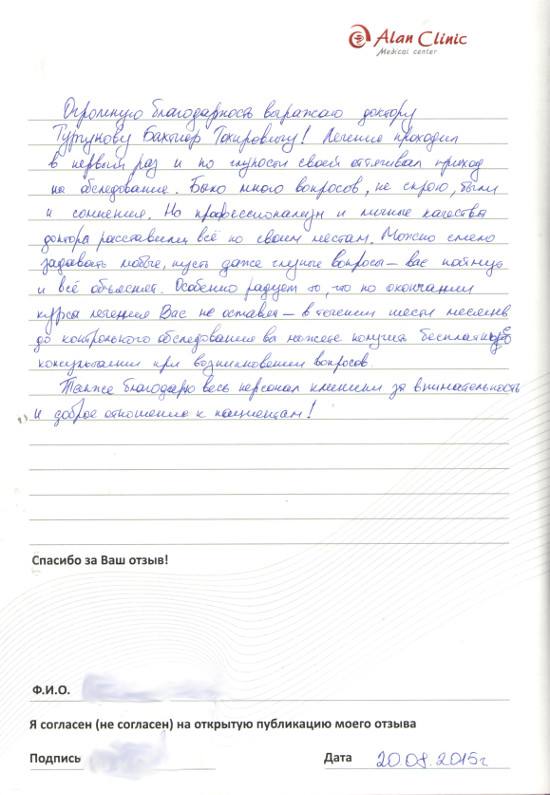 Alan Clinic
Medical center
Огромную благодарность выражаю доктору
Тургунову Бахтиёр Тохировичу! Лечение проходил
в первый раз и по глупости своей оттягивал приход
на обследование. Было много вопросов, не скрою, были
и сомнения. Но профессионализм и личные качества
доктора расставили всё по своим местам. Можно смело
задавать любые, пусть даже глупые вопросы – вас поймут
и всё объяснят. Особенно радует то, что по окончании
курса лечения Вас не оставят – в течении шести месяцев
до контрольного обследования вы можете получить бесплатную
консультацию при возникновении вопросов.
Также благодарю весь персонал клиники за внимательность
и доброе отношение к пациентам!
Спасибо за Ваш отзыв!
Ф.И.О.
Я согласен (не согласен) на открытую публикацию моего отзыва
Подпись Дата 20.08.2015г